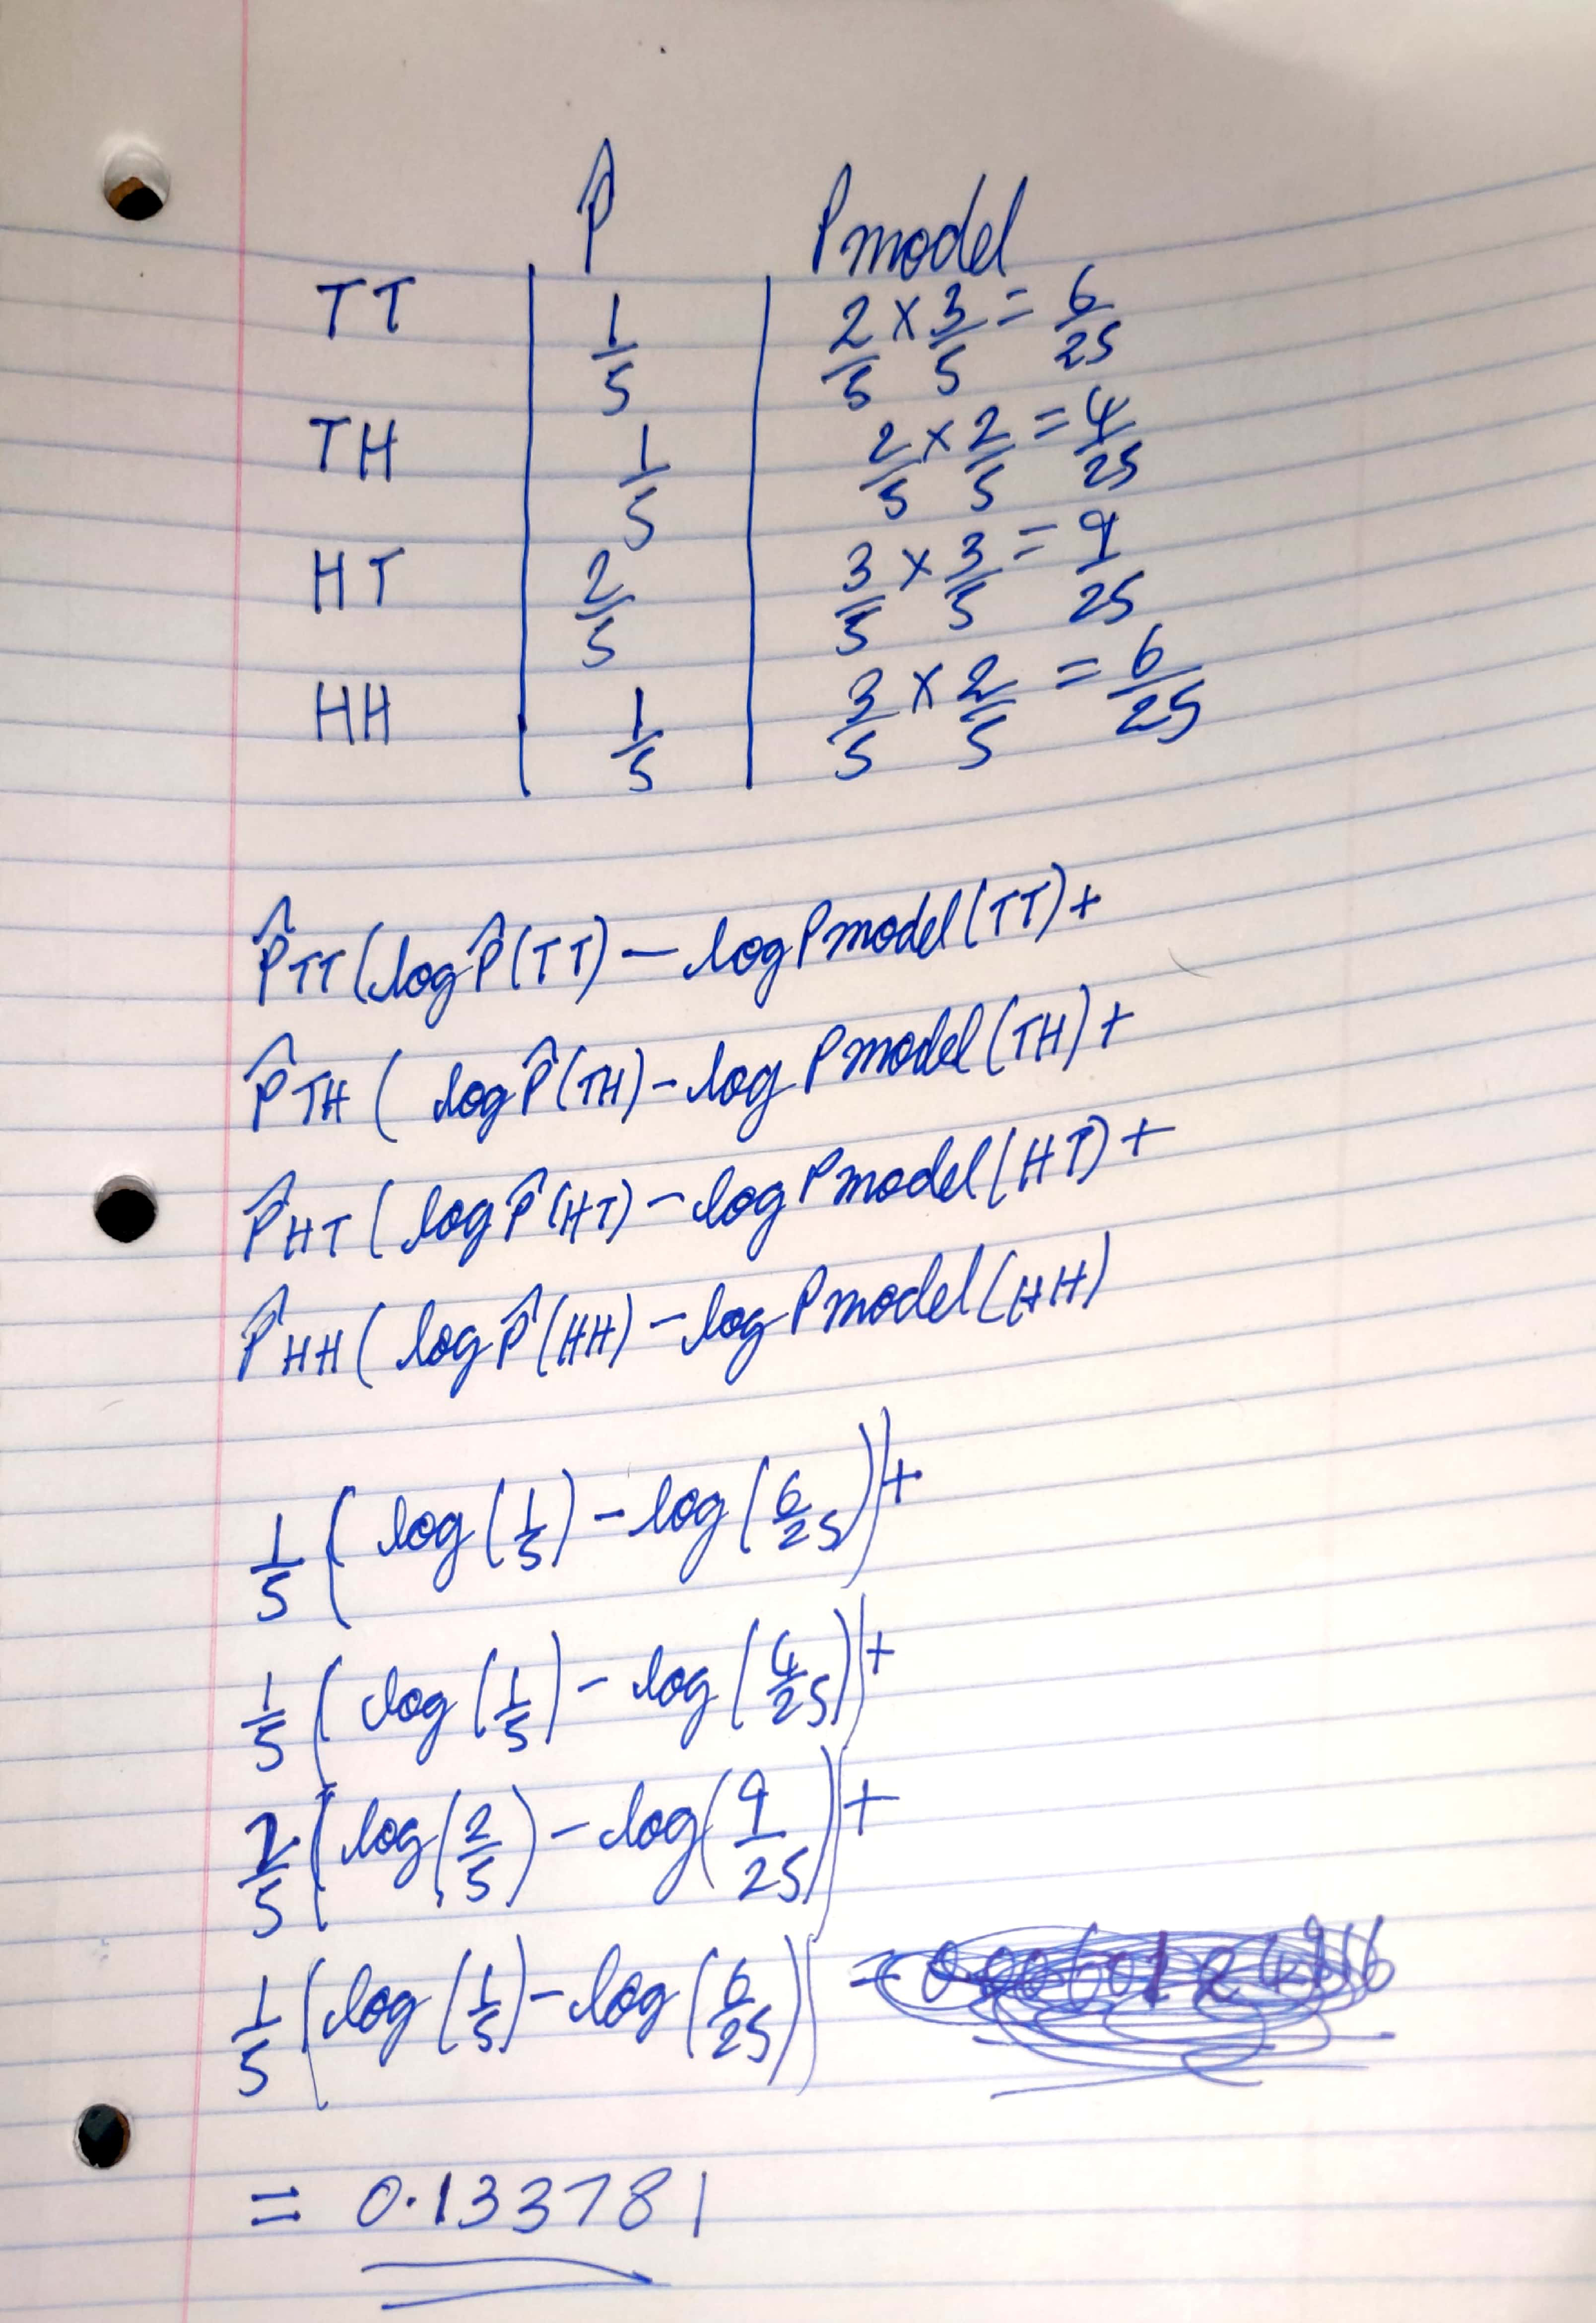 P̂ Pmodel
TT 1/5 2/5 × 3/5 = 6/25
TH 1/5 2/5 × 2/5 = 4/25
HT 2/5 3/5 × 3/5 = 9/25
HH 1/5 3/5 × 2/5 = 6/25
P̂TT (log P̂(TT) – log Pmodel(TT) +
P̂TH ( log P̂(TH) - log Pmodel(TH) +
P̂HT ( log P̂(HT) - log Pmodel(HT) +
P̂HH ( log P̂(HH) - log Pmodel(HH)
1/5 ( log (1/5) - log (6/25) ) +
1/5 ( log (1/5) - log (4/25) ) +
2/5 ( log (2/5) - log (9/25) ) +
1/5 ( log (1/5) - log (6/25) ) =
= 0.133781